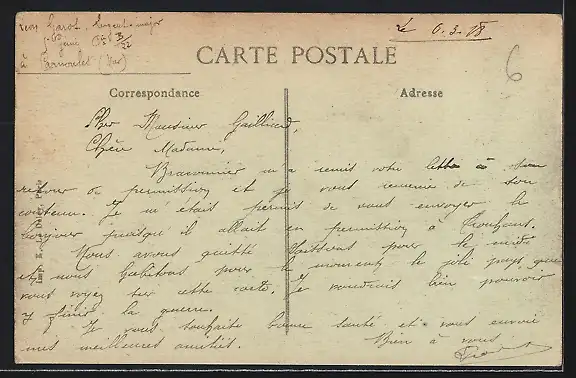 Léon Garot, Sergent-major
Le 6.3.18
6
à Carnoulet (Var)
CARTE POSTALE
Correspondance
Adresse
Cher Monsieur Gaillard,
Chère Madame,
m'a remis votre lettre à son
retour de permission et je vous remercie de son
contenu. Je m'étais permis de vous envoyer le
bonjour puisqu'il allait en permission à
Nous avons quitté pour le midi
et nous habitons pour le moment le joli pays que
vous voyez sur cette carte. Je voudrais bien pouvoir
y finir la guerre.
Je vous souhaite bonne santé et vous envoie
mes meilleures amitiés. Bien à vous